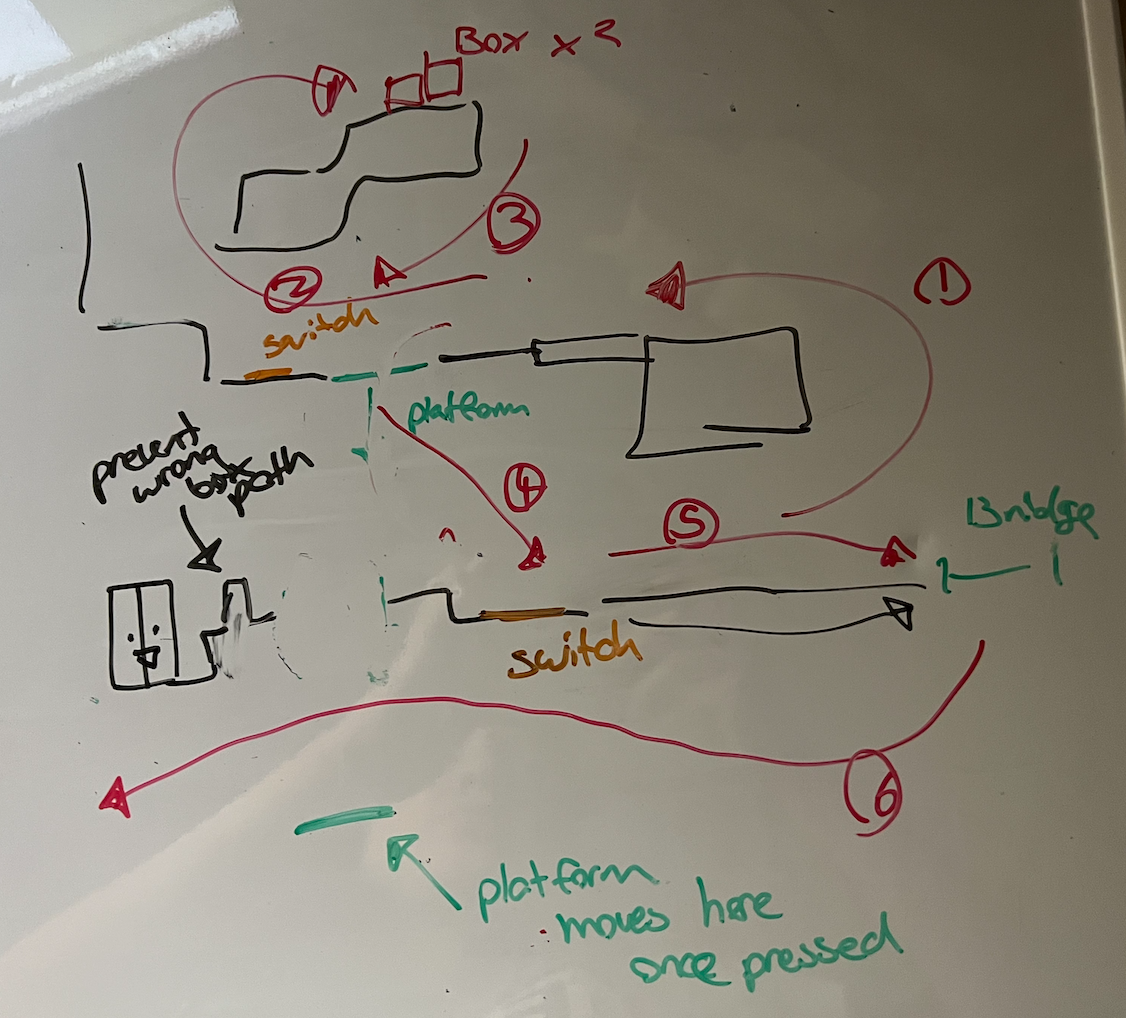 Box x 2
3
1
2
switch
platform
prevent
wrong
box
path
4
5
Bridge
switch
6
platform
moves here
once pressed